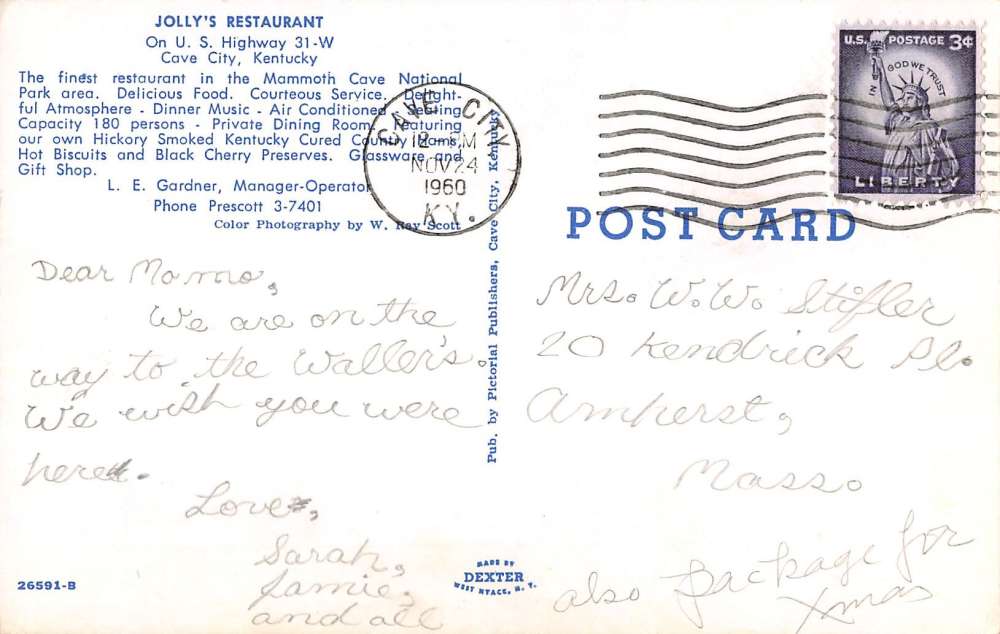 JOLLY'S RESTAURANT
On U. S. Highway 31-W
Cave City, Kentucky
The finest restaurant in the Mammoth Cave National
Park area. Delicious Food. Courteous Service. Delight-
ful Atmosphere - Dinner Music - Air Conditioned - Seating
Capacity 180 persons - Private Dining Room, featuring
our own Hickory Smoked Kentucky Cured Country Hams,
Hot Biscuits and Black Cherry Preserves. Glassware and
Gift Shop.
L. E. Gardner, Manager-Operator
Phone Prescott 3-7401
Color Photography by W. Ray Scott
CAVE CITY
12 - M
NOV 24
1960
KY.
U.S. POSTAGE 3¢
IN GOD WE TRUST
LIBERTY
POST CARD
Pub. by Pictorial Publishers, Cave City, Kentucky
Dear Momo,
We are on the
way to the Waller's.
We wish you were
here.
Love,
Sarah,
Jamie,
and all
Mrs. W. W. Stifler
20 Kendrick Pl.
Amherst,
Mass.
also package for
Xmas
26591-B
MADE BY
DEXTER
WEST NYACK, N. Y.